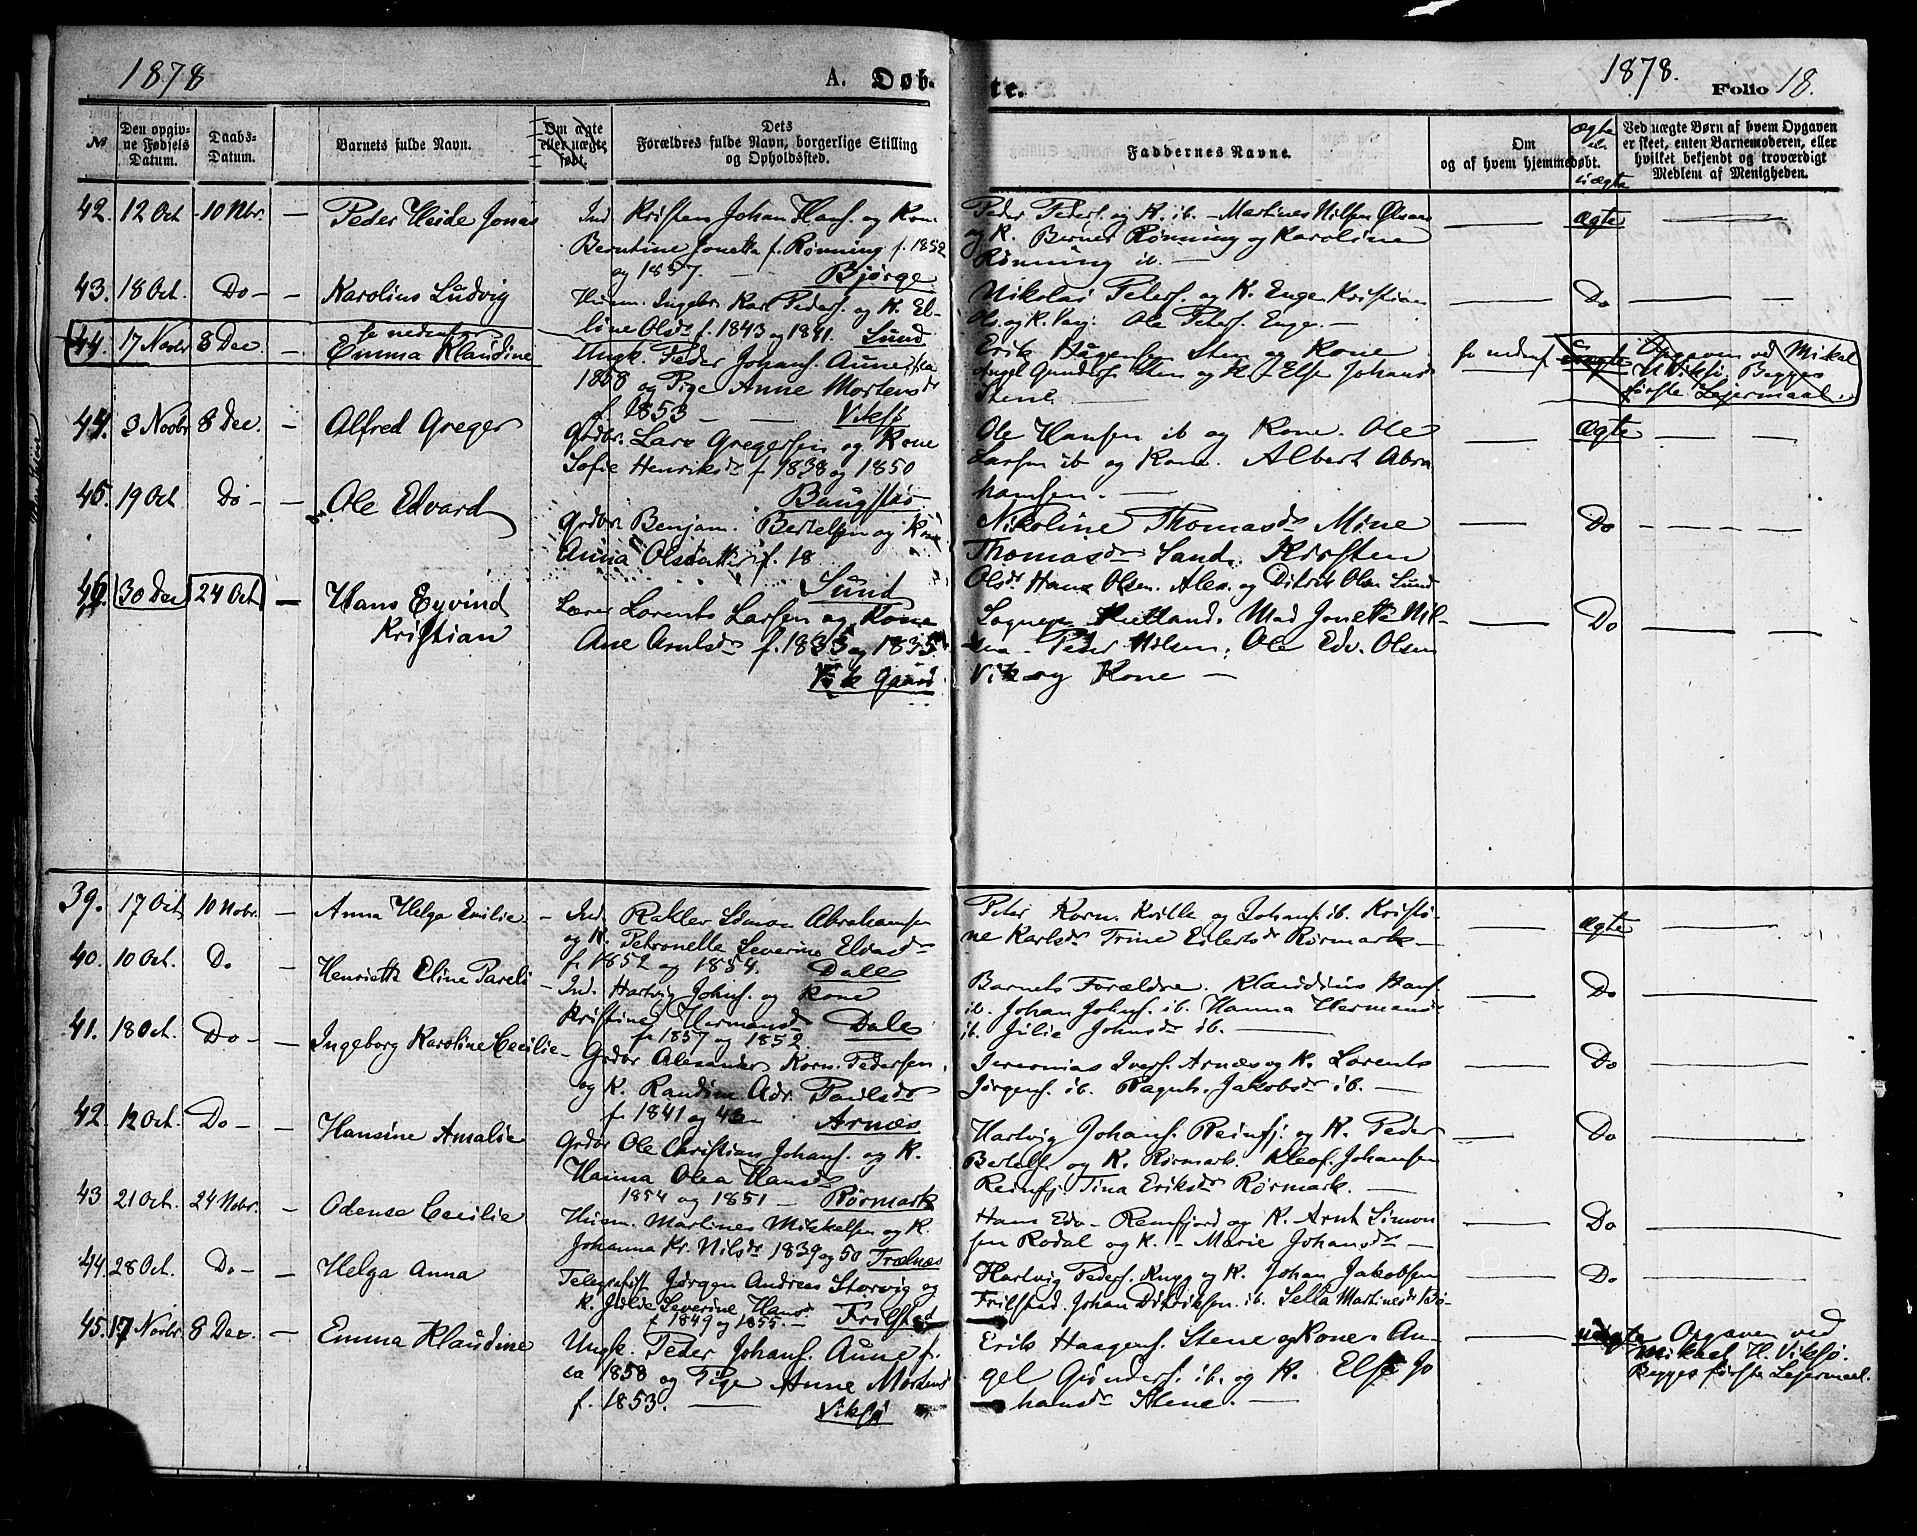 1878
A. Døb-
te.
1878.
Folio 18.
№
Den opgiv-
ne Fødsels
Datum.
Daabs-
Datum.
Barnets fulde Navn.
Om ægte
eller uægte
født.
Dets
Forældres fulde Navn, borgerlige Stilling
og Opholdssted.
Faddernes Navne.
Om
og af hvem hjemmedøbt.
ægte
el.
uægte
Ved uægte Børn af hvem Opgaven
er skeet, enten Barnemoderen, eller
hvilket bekjendt og troværdigt
Medlem af Menigheden.
42. 12 Oct 10 Nbr. — Peder Heide Jonas
Ind. Kristen Johan Hans. og Kon.
Berntine Jonetta f. Rønning f. 1852
og 1857. — Bjørge
Peder Peders. og K. ib. — Martines Nilsen
og K. Berner Rønning og Karoline
Rønning ib. —
— ægte —
43. 18 Oct. Do — — Karolius Ludvig
Husm. Ingebr. Karl Peders. og K. El-
line Olsdr f. 1843 og 1841. Lund
Nikolai Peters. og K. Enge. Kristian
Ols. og K. Ole Peters. Enge. —
— Do — —
44. 17 Novbr 8 Dec. — se nedenf
Emma Klaudine
Ungk. Peder Johans. Aune f. ca
1858 og Pige Anne Mortensdr
f. 1853 — — Viksø
Erik Haagensen Sten og Kone
Angel Gunders. Sten og K. Else Johansdr
Stene. —
se nedenf uægte Opgaven ved Mikal
H. Viksø. Begges
første Lejermaal.
44. 3 Novbr 8 Dec. — Alfred Greger
Grdbr. Lars Gregersen og Kone
Sofie Henriksdr f. 1838 og 1850
Baugstø
Ole Hansen ib og Kone. Ole
Larsen ib og Kone. Albert Abra
hamsen. —
— ægte — —
45. 19 Oct Do — — Ole Edvard
Grdbr. Benjam. Bertelsen og Kone
Anna Olsdatter f. 18
Lund
Nikoline Thomasdr Mine
Thomasdr Sand. Kirsten
Olsdr Hans Olsen. Alex. og Ditrek Olsen Lund
— Do — —
46. 30 Dec 24 Oct — Hans Eyvind
Kristian
Lærer Lorents Larsen og Kone
Ane Arntsdr f. 1835 og 1835
Vik Gaard
Sognepr. Hetland. Mad Jonetta Nil-
sen — Peter Nilsen. Ole Edv. Olsen
Vik og Kone —
— Do — —
39. 17 Oct 10 Nobr. — Anna Helga Emilie —
Ind. Rakler Simon Abrahamsen
og K. Petronelle Severine Eliasdr
f. 1852 og 1854. Dale
Peter Korn. Kville og Johans. ib. Kristi-
ne Karlsdr Trine Eilertsdr Rørmark —
— ægte —
40. 10 Oct. Do — Henriette Eline Pareli —
Ind. Hartvig Johns. og Kone
Kristine Hermansdr Dale
f. 1857 og 1852.
Barnets Forældre. Klaudius Hans.
ib. Johan Johns. ib. Hanna Hermansdr
ib. Julie Johnsdr ib. —
— Do —
41. 18 Oct. Do — — Ingeborg Karoline Cecilie —
Grdbr Alexander Korn. Pedersen
og K. Randine Adr. Paulsdr
f. 1841 og 43 — Arnæs
Jeremias Ivers. Arnæs og K. Lorents
Jørgens. ib. Ragnh. Jakobsdr ib. —
— Do —
42. 12 Oct. Do — — Hansine Amalie
Grdbr Ole Christian Johans. og K.
Hanna Olea Hansdr
1854 og 1851 — Rørmark
Hartvig Johans. Reinfj. og K. Peder
Bertels. og K. Rørmark. Kleof. Johansen
Reinfj. Tina Eriksdr Rørmark. —
— Do —
43 21 Oct. 24 Nobr. — Odense Cecilie
Husm. Martines Mikkelsen og K.
Johanna Kr. Nilsdr 1839 og 50 Trælnæs
Hans Edv. Reinfjord og K. Arnt Simon
sen Rodal og K. — Marie Johansdr —
— Do —
44. 28 Oct. Do — — Helga Anna
Telegrafist Jørgen Andreas Storvig og
K. Julie Severine Hansdr
f. 1849 og 1855. — Frilstad
Hartvig Peders. Kugg og K. Johan Jakobsen
Frilstad. Johan Didriksen ib. Sella Martinesdr
— Do —
45. 17 Novbr. 8 Dec. — Emma Klaudine
Ungk. Peder Johans. Aune f.
ca 1858 og Pige Anne Mortensdr
f. 1853. — Viksø
Erik Haagens. Stene og Kone. An-
gel Gunders. ib. og K. Else Jo
hansdr Stene. —
— uægte Opgaven ved
Mikael H. Viksø.
Begges første Lejermaal.